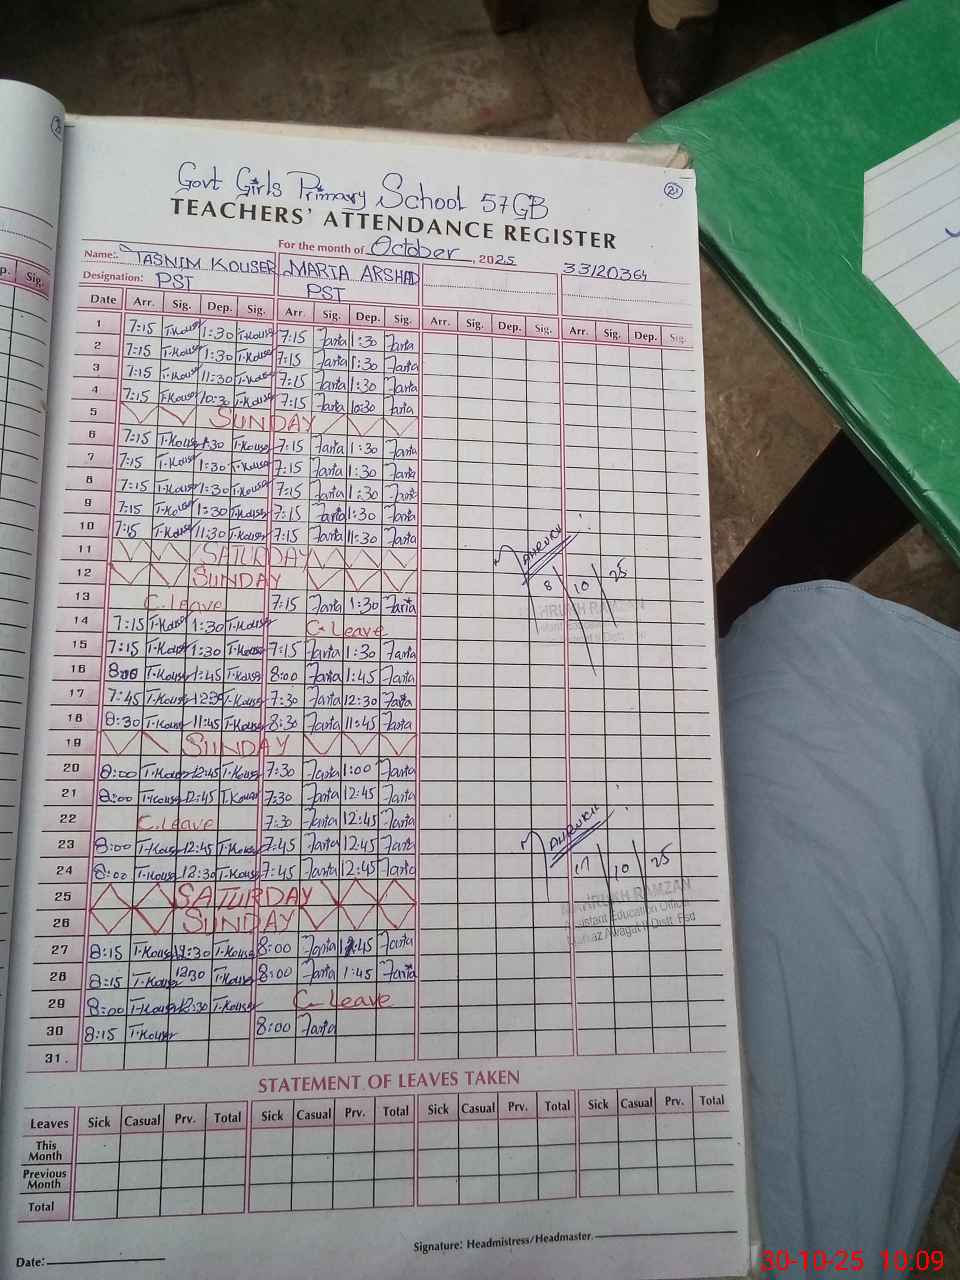 Govt Girls Primary School 57GB
21
TEACHERS' ATTENDANCE REGISTER
For the month of October, 2025
33120364
Name:- TASNIM KOUSER MARIA ARSHAD
Designation: PST PST
Date Arr. Sig. Dep. Sig. Arr. Sig. Dep. Sig. Arr. Sig. Dep. Sig. Arr. Sig. Dep. Sig.
1 7:15 T.Kouser 1:30 T.Kouser 7:15 1:30
2 7:15 T.Kouser 1:30 T.Kouser 7:15 1:30
3 7:15 T.Kouser 11:30 T.Kouser 7:15 1:30
4 7:15 T.Kouser 10:30 T.Kouser 7:15 10:30
5 SUNDAY
6 7:15 T.Kouser 1:30 T.Kouser 7:15 1:30
7 7:15 T.Kouser 1:30 T.Kouser 7:15 1:30
8 7:15 T.Kouser 1:30 T.Kouser 7:15 1:30
9 7:15 T.Kouser 1:30 T.Kouser 7:15 1:30
10 7:15 T.Kouser 11:30 T.Kouser 7:15 11:30
11 SATURDAY
12 SUNDAY
13 C.leave 7:15 1:30
14 7:15 T.Kouser 1:30 T.Kouser C-Leave
15 7:15 T.Kouser 1:30 T.Kouser 7:15 1:30
16 8:00 T.Kouser 1:45 T.Kouser 8:00 1:45
17 7:45 T.Kouser T.Kouser 7:30 12:30
18 8:30 T.Kouser 11:45 T.Kouser 8:30 11:45
19 SUNDAY
20 8:00 T.Kouser 12:45 T.Kouser 7:30 1:00
21 8:00 T.Kouser 12:45 T.Kouser 7:30 12:45
22 C.Leave 7:30 12:45
23 8:00 T.Kouser 12:45 T.Kouser 7:45 12:45
24 8:00 T.Kouser 12:30 T.Kouser 7:45 12:45
25 SATURDAY
26 SUNDAY
27 8:15 T.Kouser 12:30 T.Kouser 8:00 12:45
28 8:15 T.Kouser 12:30 T.Kouser 8:00 1:45
29 8:00 T.Kouser 12:30 T.Kouser C-Leave
30 8:15 T.Kouser 8:00
31.
8 10 25
17 10 25
RAMZAN
Assistant Education Officer
STATEMENT OF LEAVES TAKEN
Leaves Sick Casual Prv. Total Sick Casual Prv. Total Sick Casual Prv. Total Sick Casual Prv. Total
This Month
Previous Month
Total
Signature: Headmistress/Headmaster.
Date:
30-10-25 10:09